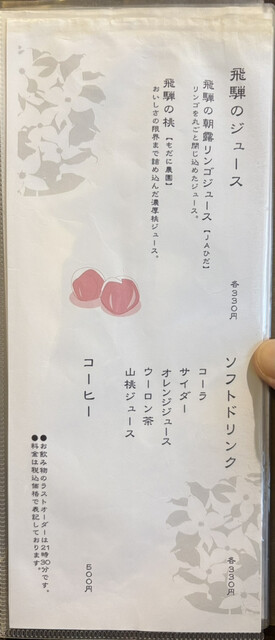 飛騨のジュース
各330円
飛騨の朝露リンゴジュース【JAひだ】
リンゴを丸ごと閉じ込めたジュース。
飛騨の桃【もだに農園】
おいしさの限界まで詰め込んだ濃厚桃ジュース。
ソフトドリンク
各330円
コーラ
サイダー
オレンジジュース
ウーロン茶
山桃ジュース
コーヒー
500円
●お飲み物のラストオーダーは21時30分です。
●料金は税込価格で表記しております。